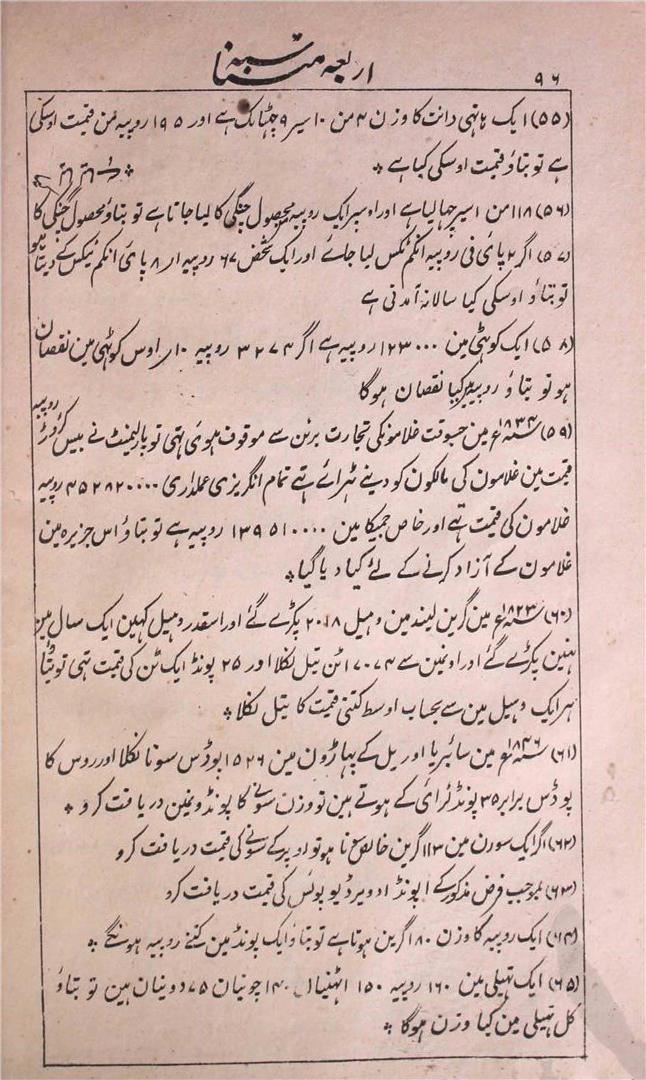 ۹۶ اربعہ متناسبہ
(۵۵) ایک ہاتہی دانت کا وزن ۴ من ۱۰ سیر ۹ چہٹانک ہے اور ۱۹۵ روپیہ من قیمت اوسکی
ہے تو بتاؤ قیمت اوسکی کیا ہے *
(۵۶) ۱۱۸ من ۱ سیر چہالیا ہے اور اوسپر ایک روپیہ محصول چنگی کا لیا جاتا ہے تو بتاؤ محصول چنگی کا
(۵۷) اگر ۲ پائی فی روپیہ انکم ٹکس لیا جائے اور ایک شخص ۶۷ روپیہ ۸ پائی انکم ٹیکس کے دیتا ہو
تو بتاؤ اوسکی کیا سالانہ آمدنی ہے
(۵۸) ایک کوٹہی مین ۱۲۳۰۰۰ روپیہ ہے اگر ۳۲۷۴ روپیہ ۱۰ ار اوس کوٹہی مین نقصان
ہو تو بتاؤ روپیہ پر کیا نقصان ہوگا
(۵۹) ۱۸۳۴ء مین جسوقت غلامونکی تجارت برٹن سے موقوف ہوئی تہی تو پارلیمنٹ نے بیس کروڑ روپیہ
قیمت مین غلامون کی مالکون کو دینے ٹہرائے تہے تمام انگریزی عملداری ۴۵۲۸۲۰۰۰۰ روپیہ
غلامون کی قیمت تہے اور خاص جمیکا مین ۱۳۹۵۱۰۰۰۰ روپیہ ہے تو بتاؤ اس جزیرہ مین
غلامون کے آزاد کرنے کے لئے کیا دیا گیا *
(۶۰) ۱۸۲۳ء مین گرین لینڈ مین وہیل ۲۰۱۸ پکڑے گئے اور اسقدر وہیل کہین ایک سال مین
نہین پکڑے گئے اور اونمین سے ۱۷۰۷۴ ٹن تیل نکلا اور ۲۵ پونڈ ایک ٹن کی قیمت تہی تو بتاؤ
ہر ایک وہیل مین سے بحساب اوسط کتنی قیمت کا تیل نکلا *
(۶۱) ۱۸۴۶ء مین سائبریا اور یل کے پہاڑون مین ۱۵۲۶ پوڈس سونا نکلا اور روس کا
پوڈس برابر ۳۵ پونڈ ٹرائی کے ہوتے ہین تو وزن سونے کا پونڈونمین دریافت کرو *
(۶۲) اگر ایک سورن مین ۱۱۳ گرین خالص سونا ہو تو اوپر کے سونے کی قیمت دریافت کرو
(۶۳) بموجب فرض مذکور کے ۱ پونڈ اوویرڈیوپوئس کی قیمت دریافت کرو
(۶۴) ایک روپیہ کا وزن ۱۸۰ گرین ہوتا ہے تو بتاؤ ایک پونڈ مین کتنے روپیہ ہونگے *
(۶۵) ایک تہیلی مین ۱۶۰ روپیہ ۱۵۰ اٹہنیان ۱۴۰ چونیان ۷۵ دونیان ہین تو بتاؤ
کل تہیلی مین کیا وزن ہوگا *